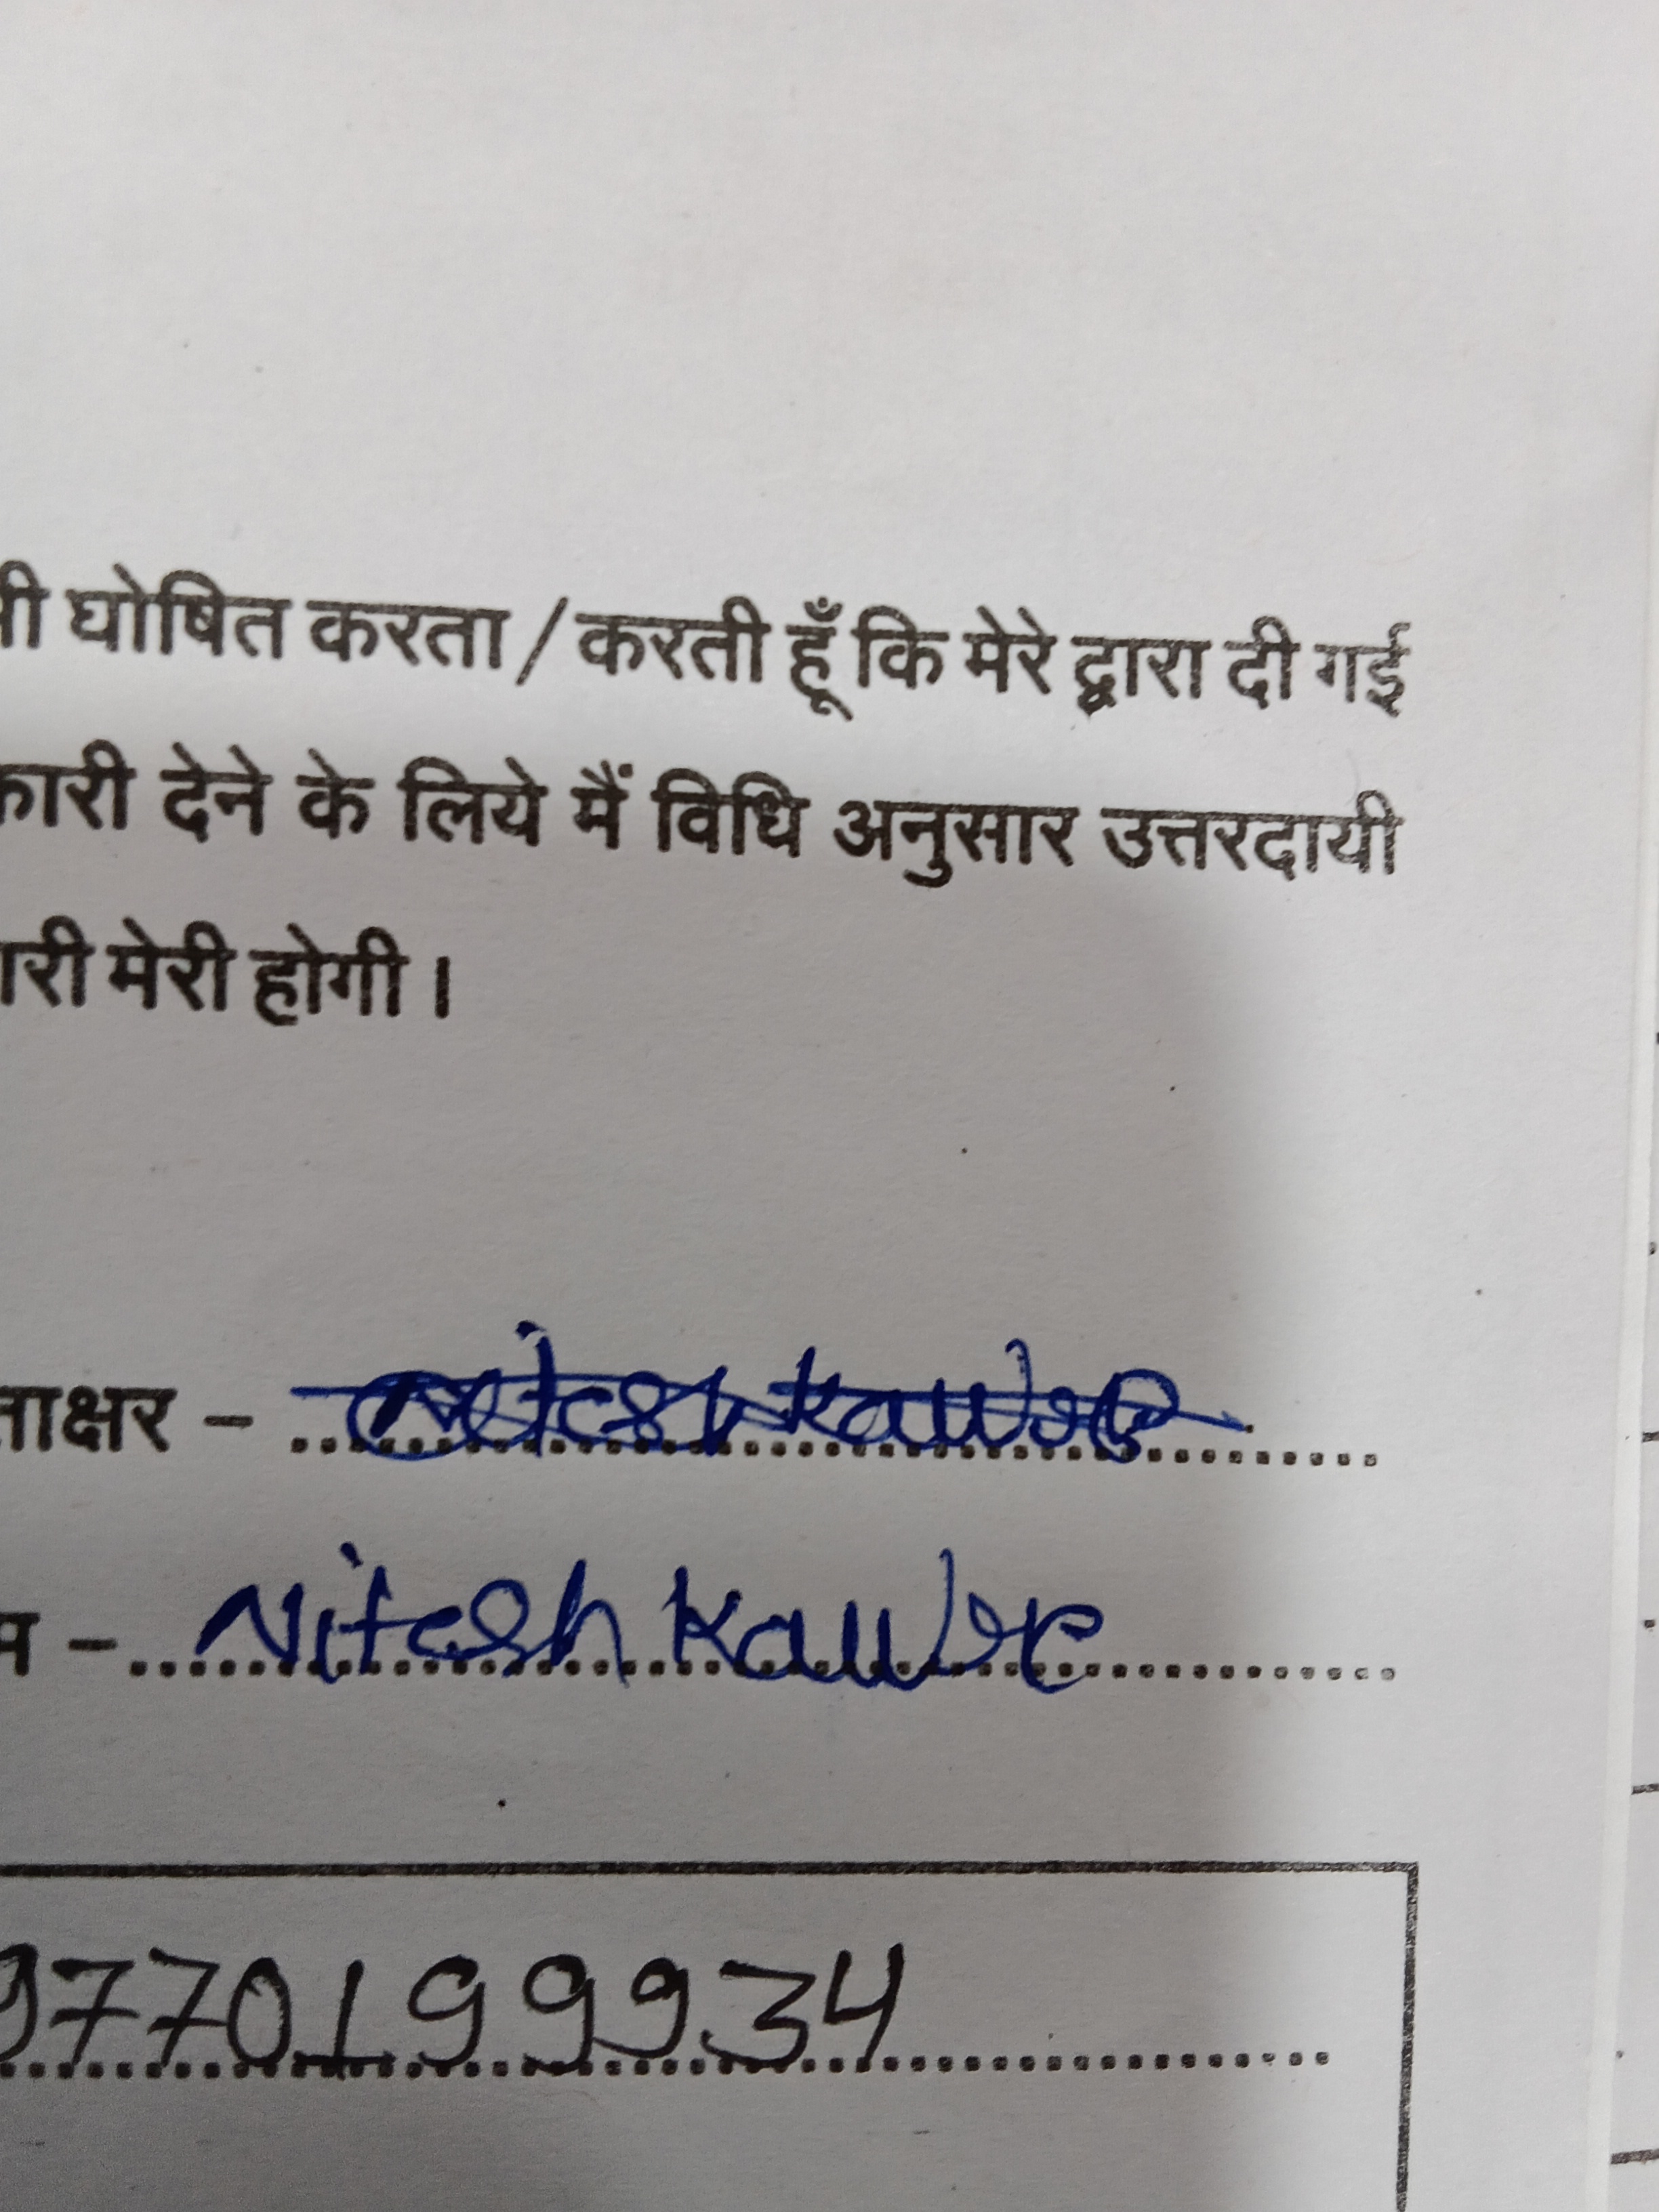 भी घोषित करता / करती हूँ कि मेरे द्वारा दी गई
कारी देने के लिये मैं विधि अनुसार उत्तरदायी
ारी मेरी होगी।
ताक्षर - Nitesh
म - Nitesh
9770199934